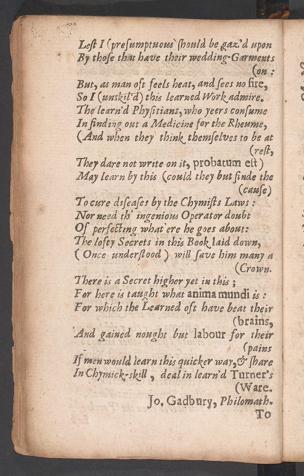 Lest I (presumptuous should be gaz'd upon
By those that have their wedding-Garments
(on:
But, as man oft feels heat, and sees no fire,
So I (unskil'd) this learned Work admire.
The learn'd Physitians, who yeers consume
In finding out a Medicine for the Rheume,
(And when they think themselves to be at
(rest,
They dare not write on it, probatum est)
May learn by this (could they but finde the
(cause)
To cure diseases by the Chymists Laws:
Nor need th' ingenious Operator doubt
Of perfecting what ere he goes about:
The lofty Secrets in this Book laid down,
(Once understood) will save him many a
(Crown.
There is a Secret higher yet in this;
For here is taught what anima mundi is:
For which the Learned oft have beat their
(brains,
And gained nought but labour for their
(pains
If men would learn this quicker way, & share
In Chymick-skill, deal in learn'd Turner's
(Ware.
Jo. Gadbury, Philomath.
To